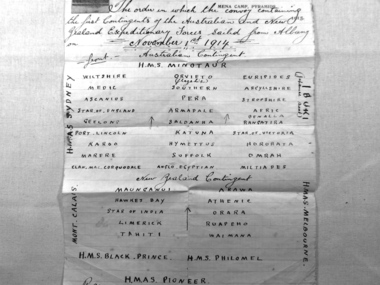 MENA CAMP, PYRAMIDS.
The order in which the convoy containing
the first Contingents of the Australian and New
Zealand Expeditionary Forces Sailed from Albany
on November 1st 1914
front Australian Contingent
H.M.S. MINOTAUR
WILTSHIRE ORVIETO EURIPIDES
(Flagship)
MEDIC SOUTHERN ARGYLLSHIRE
ASCANIUS PERA SHROPSHIRE
STAR OF ENGLAND ARMADALE AFRIC
BENALLA
GEELONG SALDANHA RANGATIRA
PORT LINCOLN KATUNA STAR OF VICTORIA
KAROO HYMETTUS HOROROATA
MARERE SUFFOLK OMRAH
CLAN MAC CORQUODALE ANGLO EGYPTIAN MILTIADES
New Zealand Contingent
MAUNGANUI ARAWA
HAWKES BAY ATHENIC
STAR OF INDIA ORARI
LIMERICK RUAPEHU
TAHITI WAIMANA
H.M.S. BLACK PRINCE. H.M.S. PHILOMEL
H.M.A.S. PIONEER
H.M.A.S SYDNEY
MORT. CALAIS.
IBUKI
H.M.A.S. MELBOURNE.